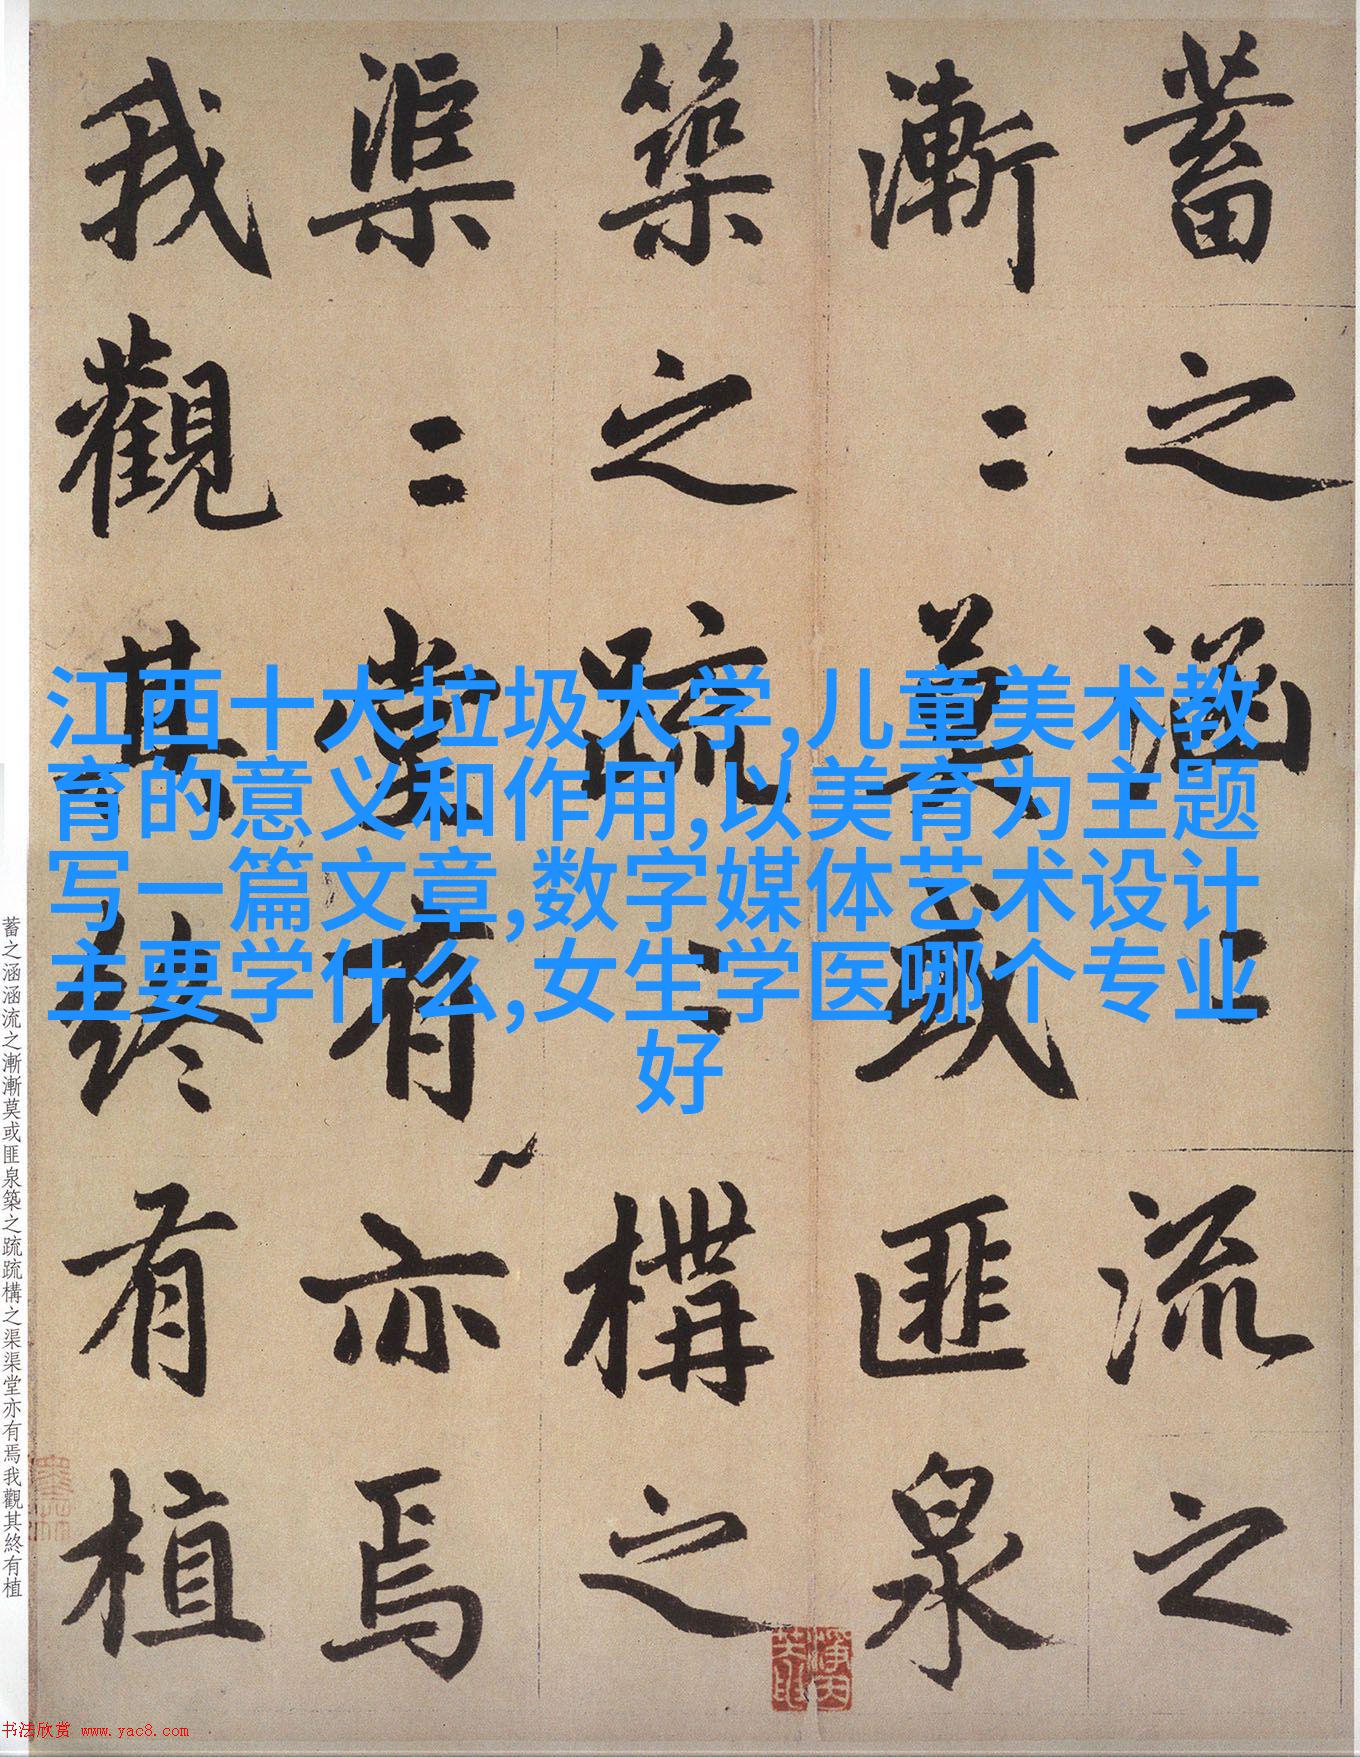 蓄之涵〻流之
漸〻莫或匪泉
築之疏〻構之
渠〻堂有亦焉
我觀其終有植
江西十大垃圾大学,儿童美术教
育的意义和作用,以美育为主题
写一篇文章,数字媒体艺术设计
主要学什么,女生学医哪个专业
好
蓄之涵涵流之漸漸莫或匪泉築之疏疏構之渠渠堂亦有焉我觀其終有植
书法欣赏 www.yac8.com